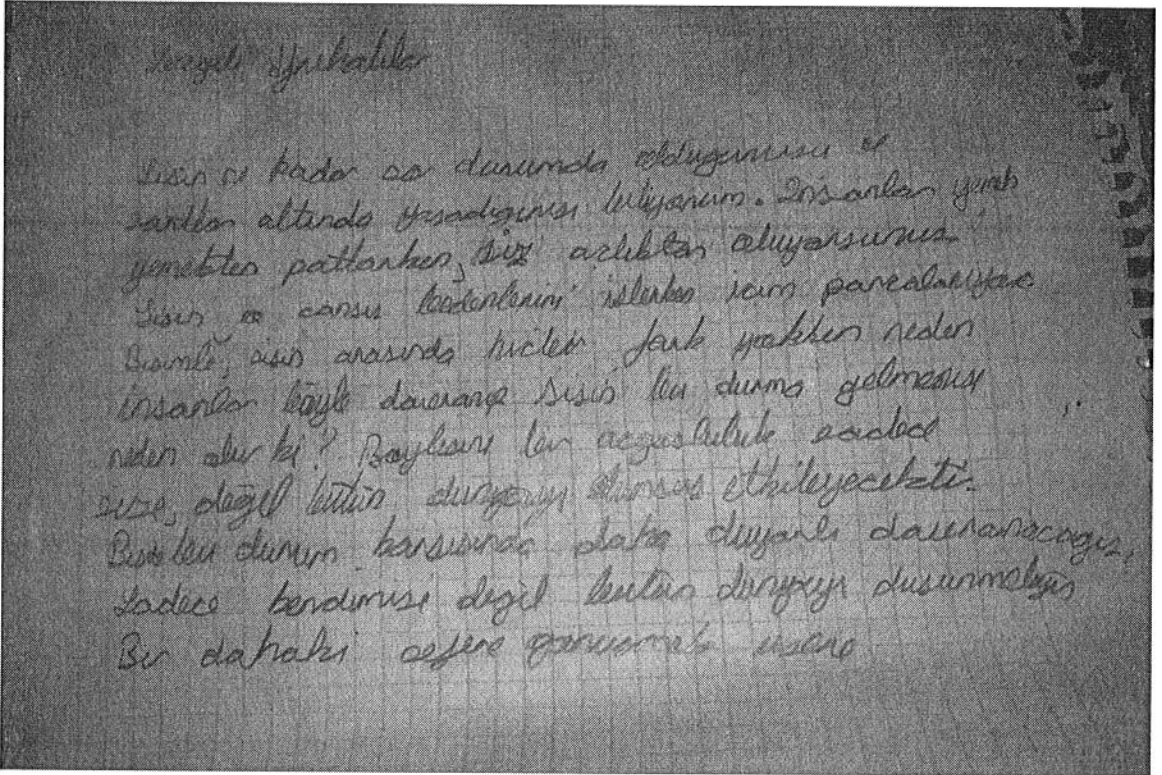 Sevgili Afrikalılar
Sizin ne kadar zor durumda oldugunuzu ve
sartlar altında yasadıgınızı biliyorum. İnsanlar yemek
yemekten patlarken, siz aclıktan oluyorsunuz.
Sizin o cansız bedenlerini izlerken icim parcalanıyor
Bizimle, sizin arasında hicbir fark yokken neden
insanlar böyle davranıp sizin bu durma gelmenize
neden olur ki? Boylesine bir acgozluluk sadece
size, degil butun dunyayı etkileyecekti.
Bizde bu durum karsısında daha duyarlı davranacagız,
Sadece kendimizi degil butun dunyayı dusunmeliyiz
Bir dahaki sefere gorusmek uzere